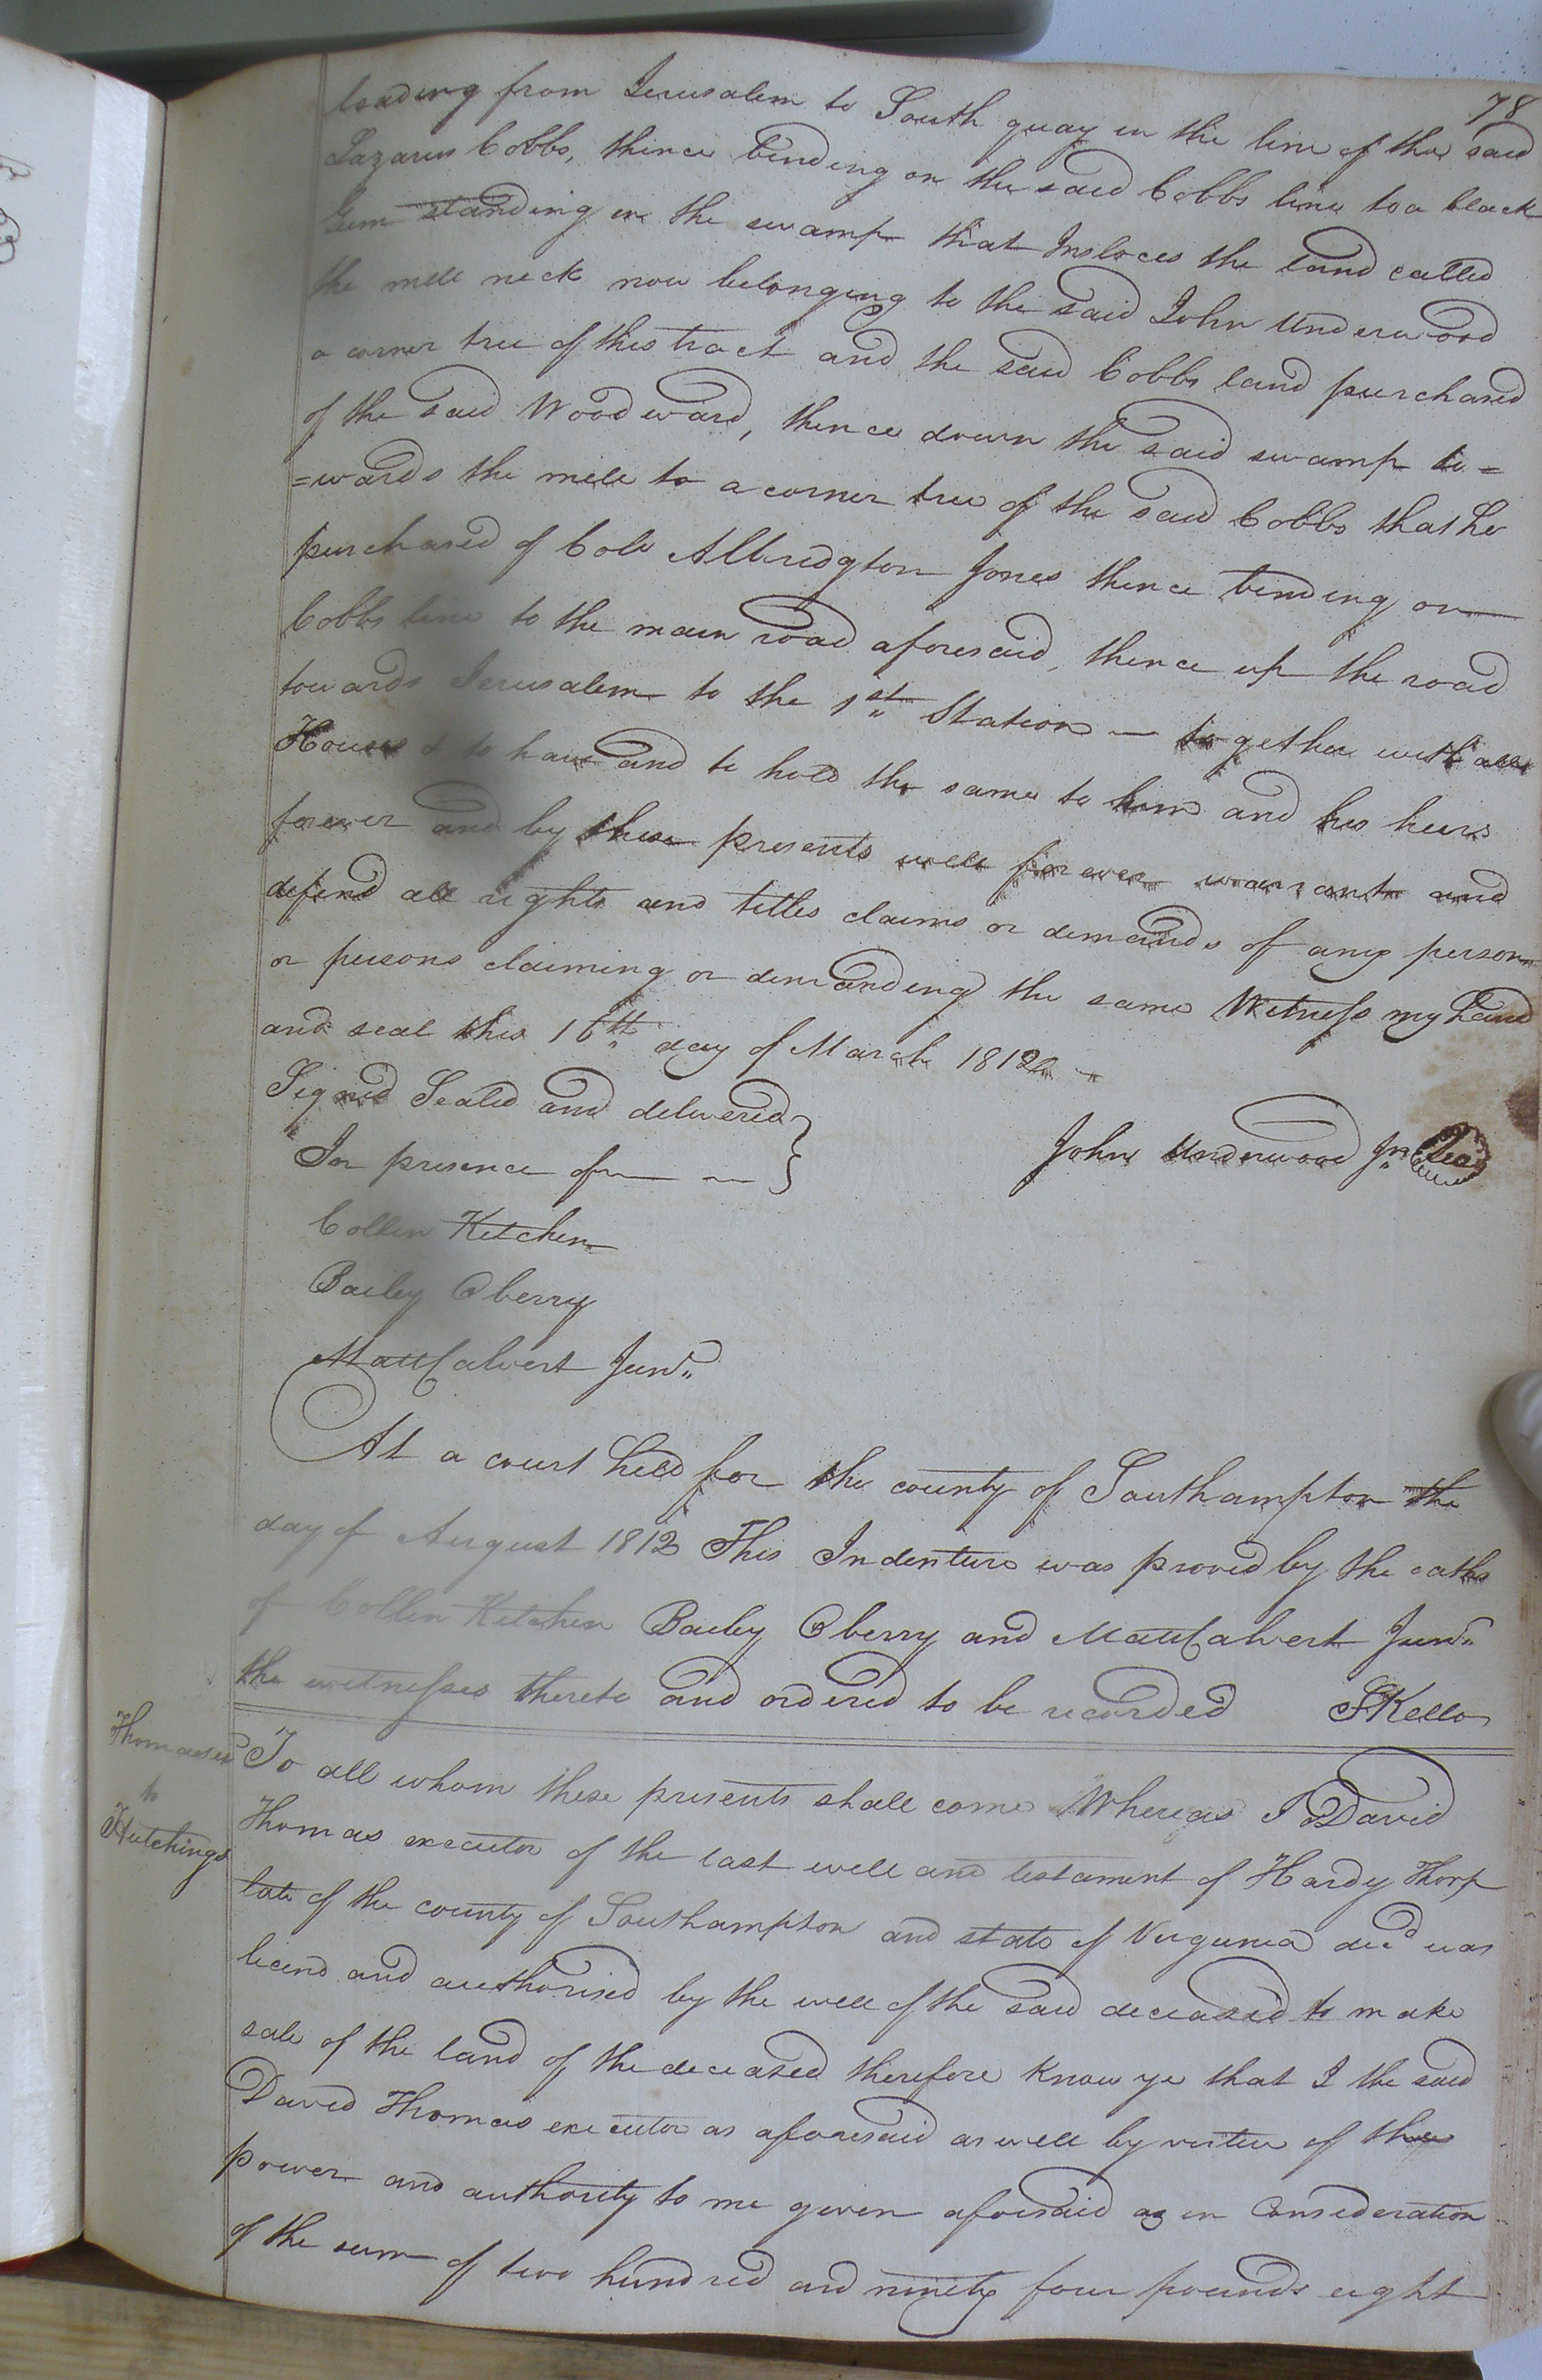 78
leading from Jerusalem to South quay in the line of the said
Lazarus Cobbs, thence binding on the said Cobbs line to a black
Gum standing in the swamp that Insloces the land called
the mill neck now belonging to the said John Underwood
a corner tree of this tract and the said Cobbs land purchased
of the said Woodward, thence down the said swamp to =
=wards the mill to a corner tree of the said Cobbs that he
purchased of Colo Albridgton Jones thence binding on
Cobbs line to the main road aforesaid, thence up the road
towards Jerusalem to the 1st Station — together with all
Houses & to have and to hold the same to him and his heirs
forever and by these presents will forever warrant and
defend all rights and titles claims or demands of any person
or persons claiming or demanding the same Witness my hand
and seal this 16th day of March 1812
Signed Sealed and delivered
In presence of
John Underwood Jnr Seal
Collin Kitchen
Bailey Oberry
Matt Calvert Junr
At a court held for the county of Southampton the
day of August 1812 This Indenture was proved by the oaths
of Collin Kitchen Bailey Oberry and Matt Calvert Junr
the witnesses thereto and ordered to be recorded SKello
Thomas exr
to
Hutchings
To all whom these presents shall come Whereas I David
Thomas executor of the last will and testament of Hardy Thorp
late of the county of Southampton and state of Virginia decd was
licend and authorised by the will of the said deceased to make
sale of the land of the deceased therefore Know ye that I the said
David Thomas executor as aforesaid as well by virtue of the
power and authority to me given aforesaid as in Consideration
of the sum of two hundred and ninety four pounds eight